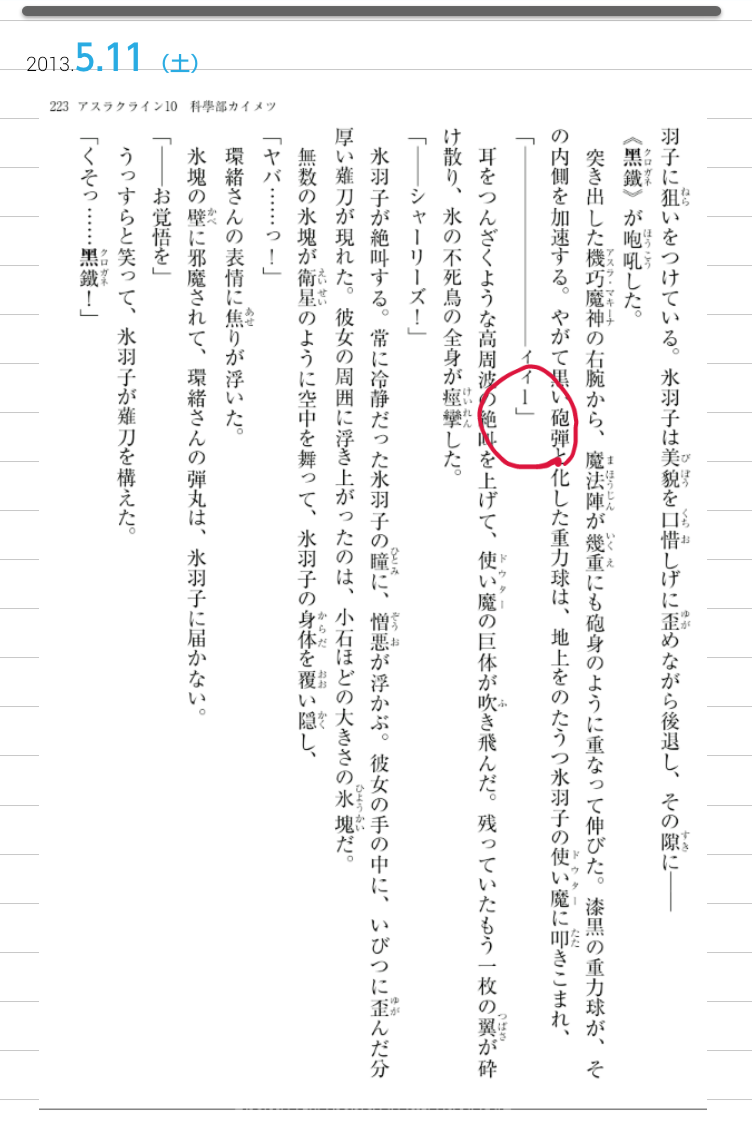 2013.5.11（土）
223 アスラクライン10 科學部カイメツ
羽子に狙いをつけている。氷羽子は美貌を口惜しげに歪めながら後退し、その隙に――
《黑鐵》が咆吼した。
突き出した機巧魔神の右腕から、魔法陣が幾重にも砲身のように重なって伸びた。漆黒の重力球が、そ
の内側を加速する。やがて黒い砲弾と化した重力球は、地上をのたうつ氷羽子の使い魔に叩きこまれ、
「――――――――――ィィ１」
耳をつんざくような高周波の絶叫を上げて、使い魔の巨体が吹き飛んだ。残っていたもう一枚の翼が砕
け散り、氷の不死鳥の全身が痙攣した。
「――シャーリーズ！」
氷羽子が絶叫する。常に冷静だった氷羽子の瞳に、憎悪が浮かぶ。彼女の手の中に、いびつに歪んだ分
厚い薙刀が現れた。彼女の周囲に浮き上がったのは、小石ほどの大きさの氷塊だ。
無数の氷塊が衛星のように空中を舞って、氷羽子の身体を覆い隠し、
「ヤバ……っ！」
環緒さんの表情に焦りが浮いた。
氷塊の壁に邪魔されて、環緒さんの弾丸は、氷羽子に届かない。
「――お覚悟を」
うっすらと笑って、氷羽子が薙刀を構えた。
「くそっ……黑鐵！」